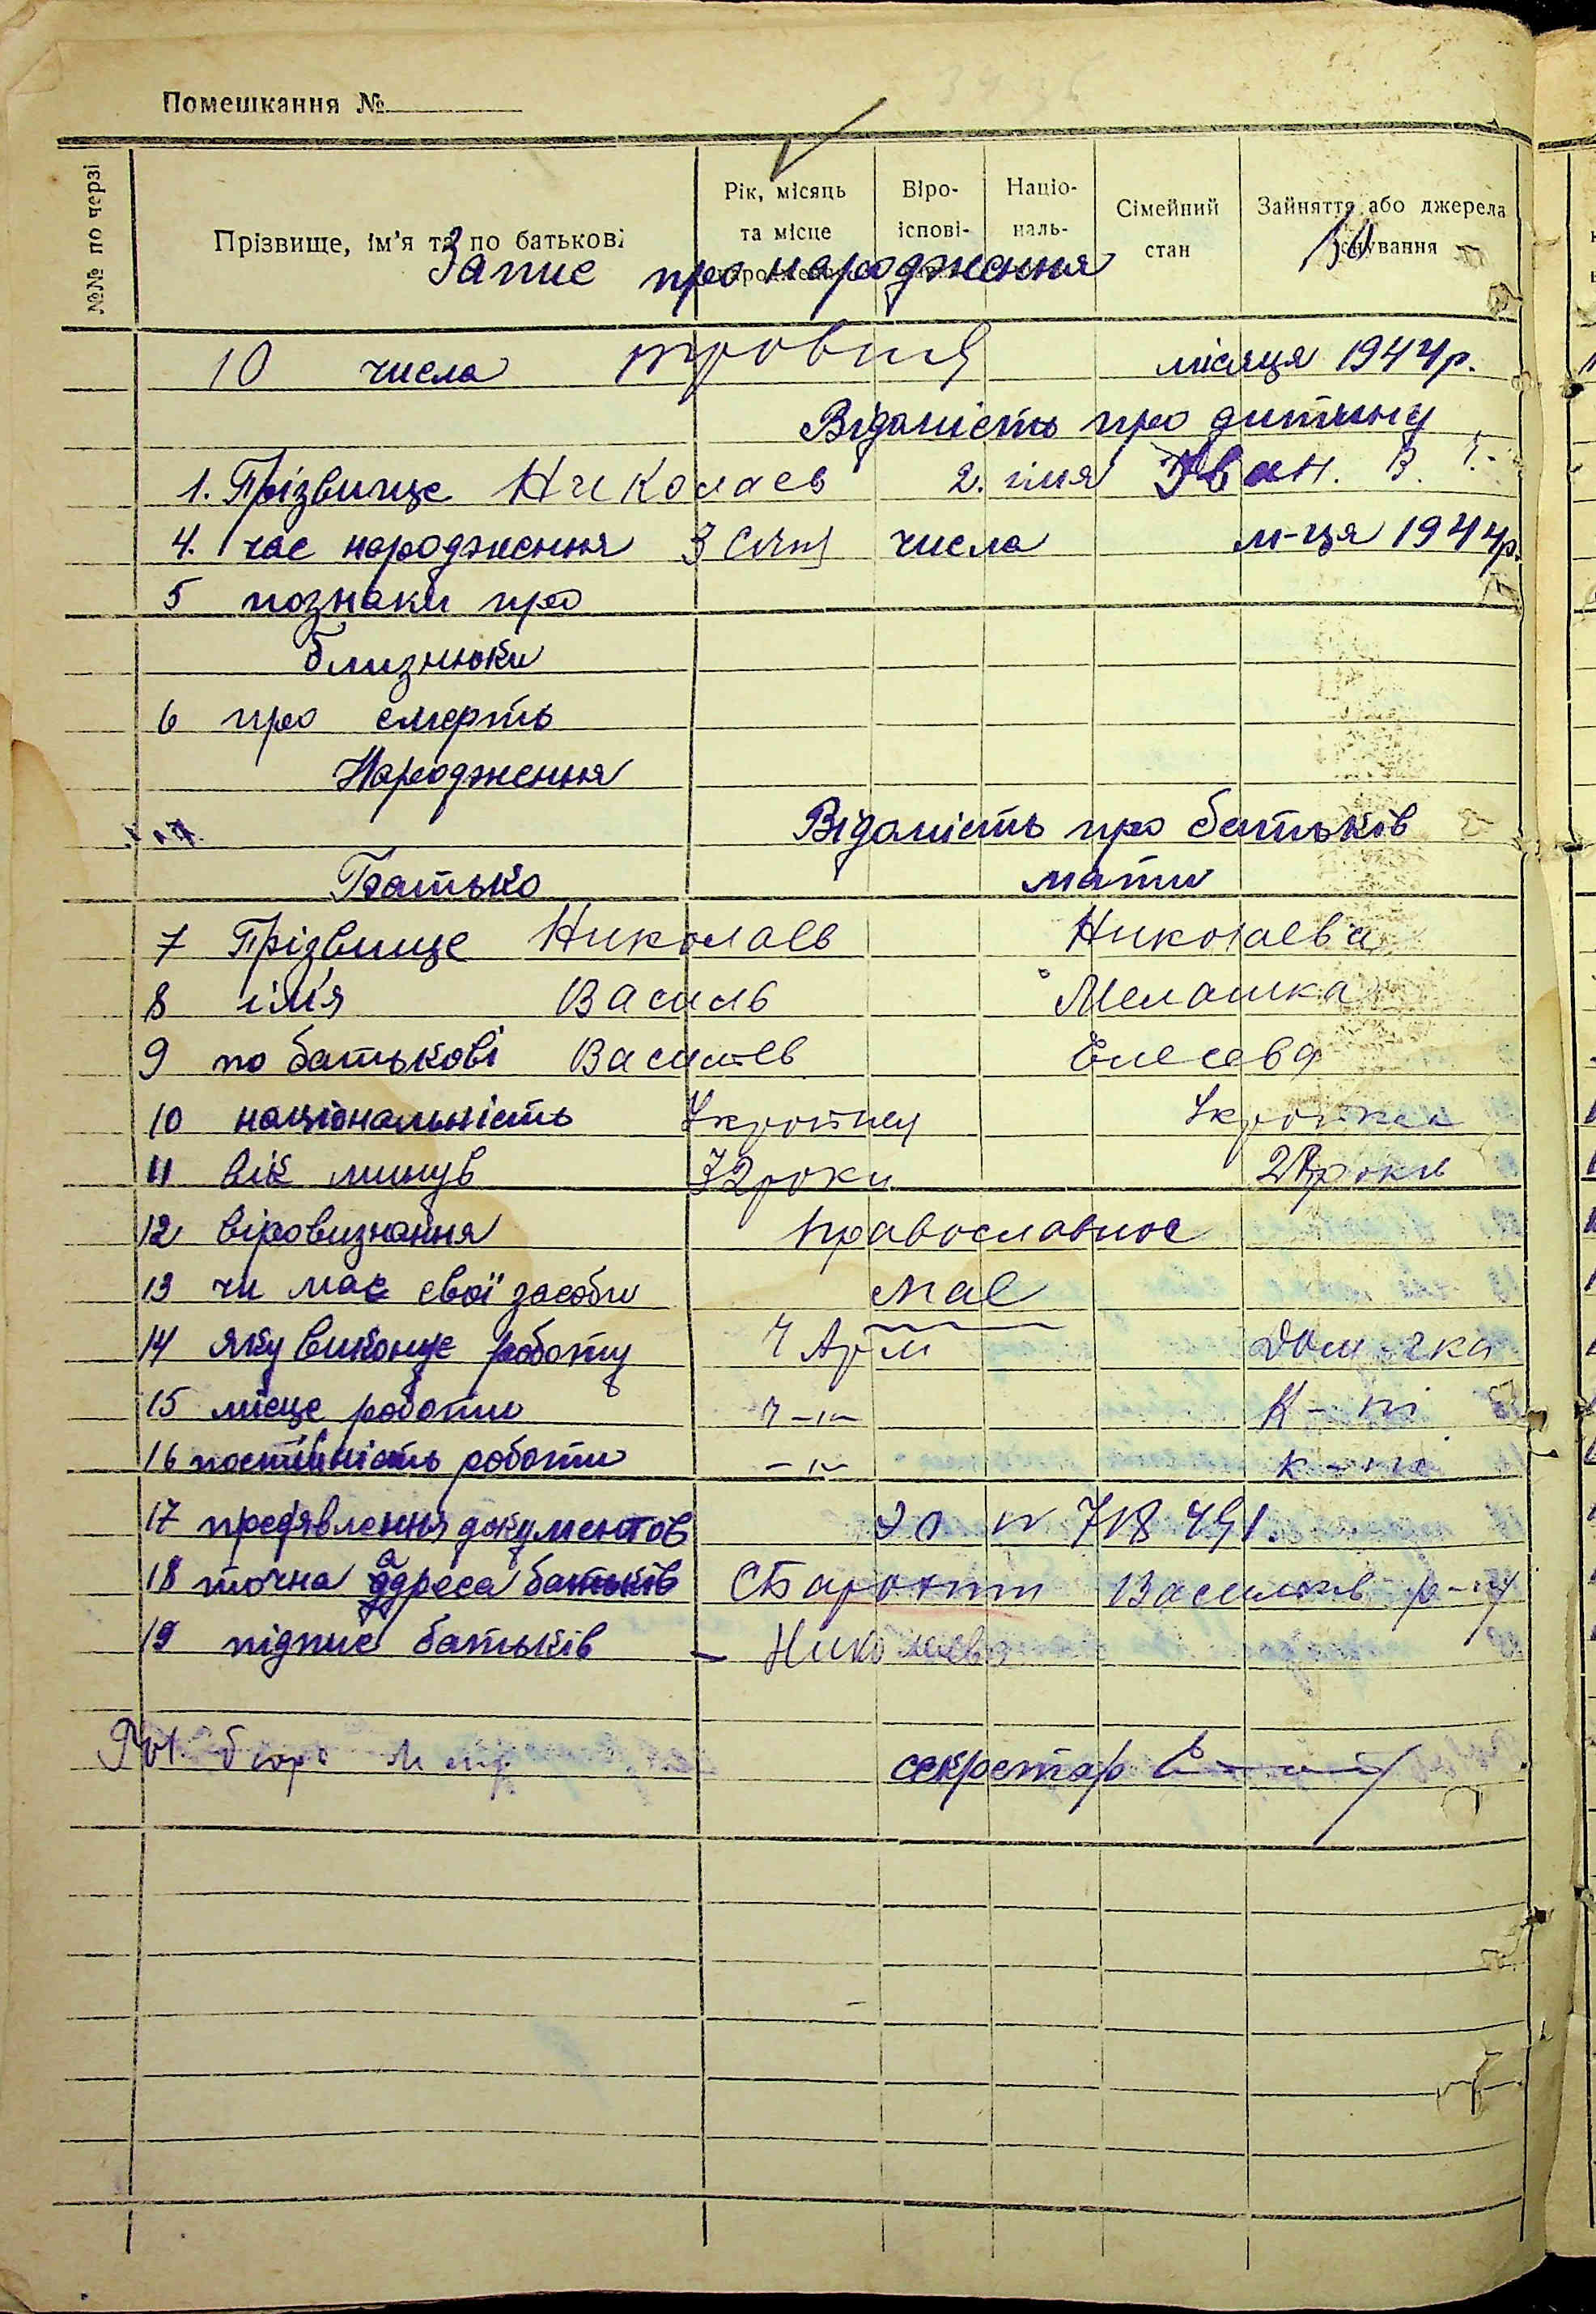 Помешкання №
№№ по черзі
Прізвище, ім'я та по батькові
Рік, місяць та місце
Віро-іспові-
Націо-наль-
Сімейний стан
Зайняття або джерела існування
Запис про народження
10 числа травня місяця 1944р.
Відомість про дитину
1. Прізвище Николаев 2. імя Иван. В.
4. час народження 3 числа м-ця 1944р.
5 познаки про
близнюки
6 про смерть
Народження
Відомість про батьків
Батько мати
7 Прізвище Николаев Николаева
8 імя Василь Мелашка
9 по батькові Васильев
10 національність
11 вік минув 32роки роки
12 віровизнання православное
13 чи має свої засоби має
14 яку виконує роботу Арм Дом-чка
15 місце роботи
16 постійність роботи
17 предявлення документов
18 точна адреса батьків Васильків р-ну
19 підпис батьків - Николаева
бюро
секретар